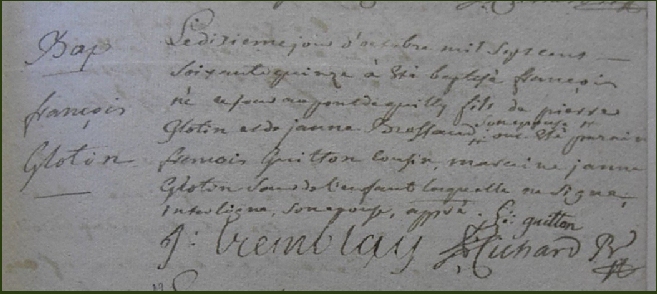 Bap
françois
Glotin
Le dixieme jour d'octobre mil Sept cens
Soixante quinze à été baptisé françois
né ce jour au pont de quilly fils de pierre
Glotin et de janne Bressaud son epouse ont été parain
francois Guitton cousin, maraine janne
Glotin l'enfant laquelle ne Signe,
interligne, son epouse, apprové. guitton
J: tremblay Richard